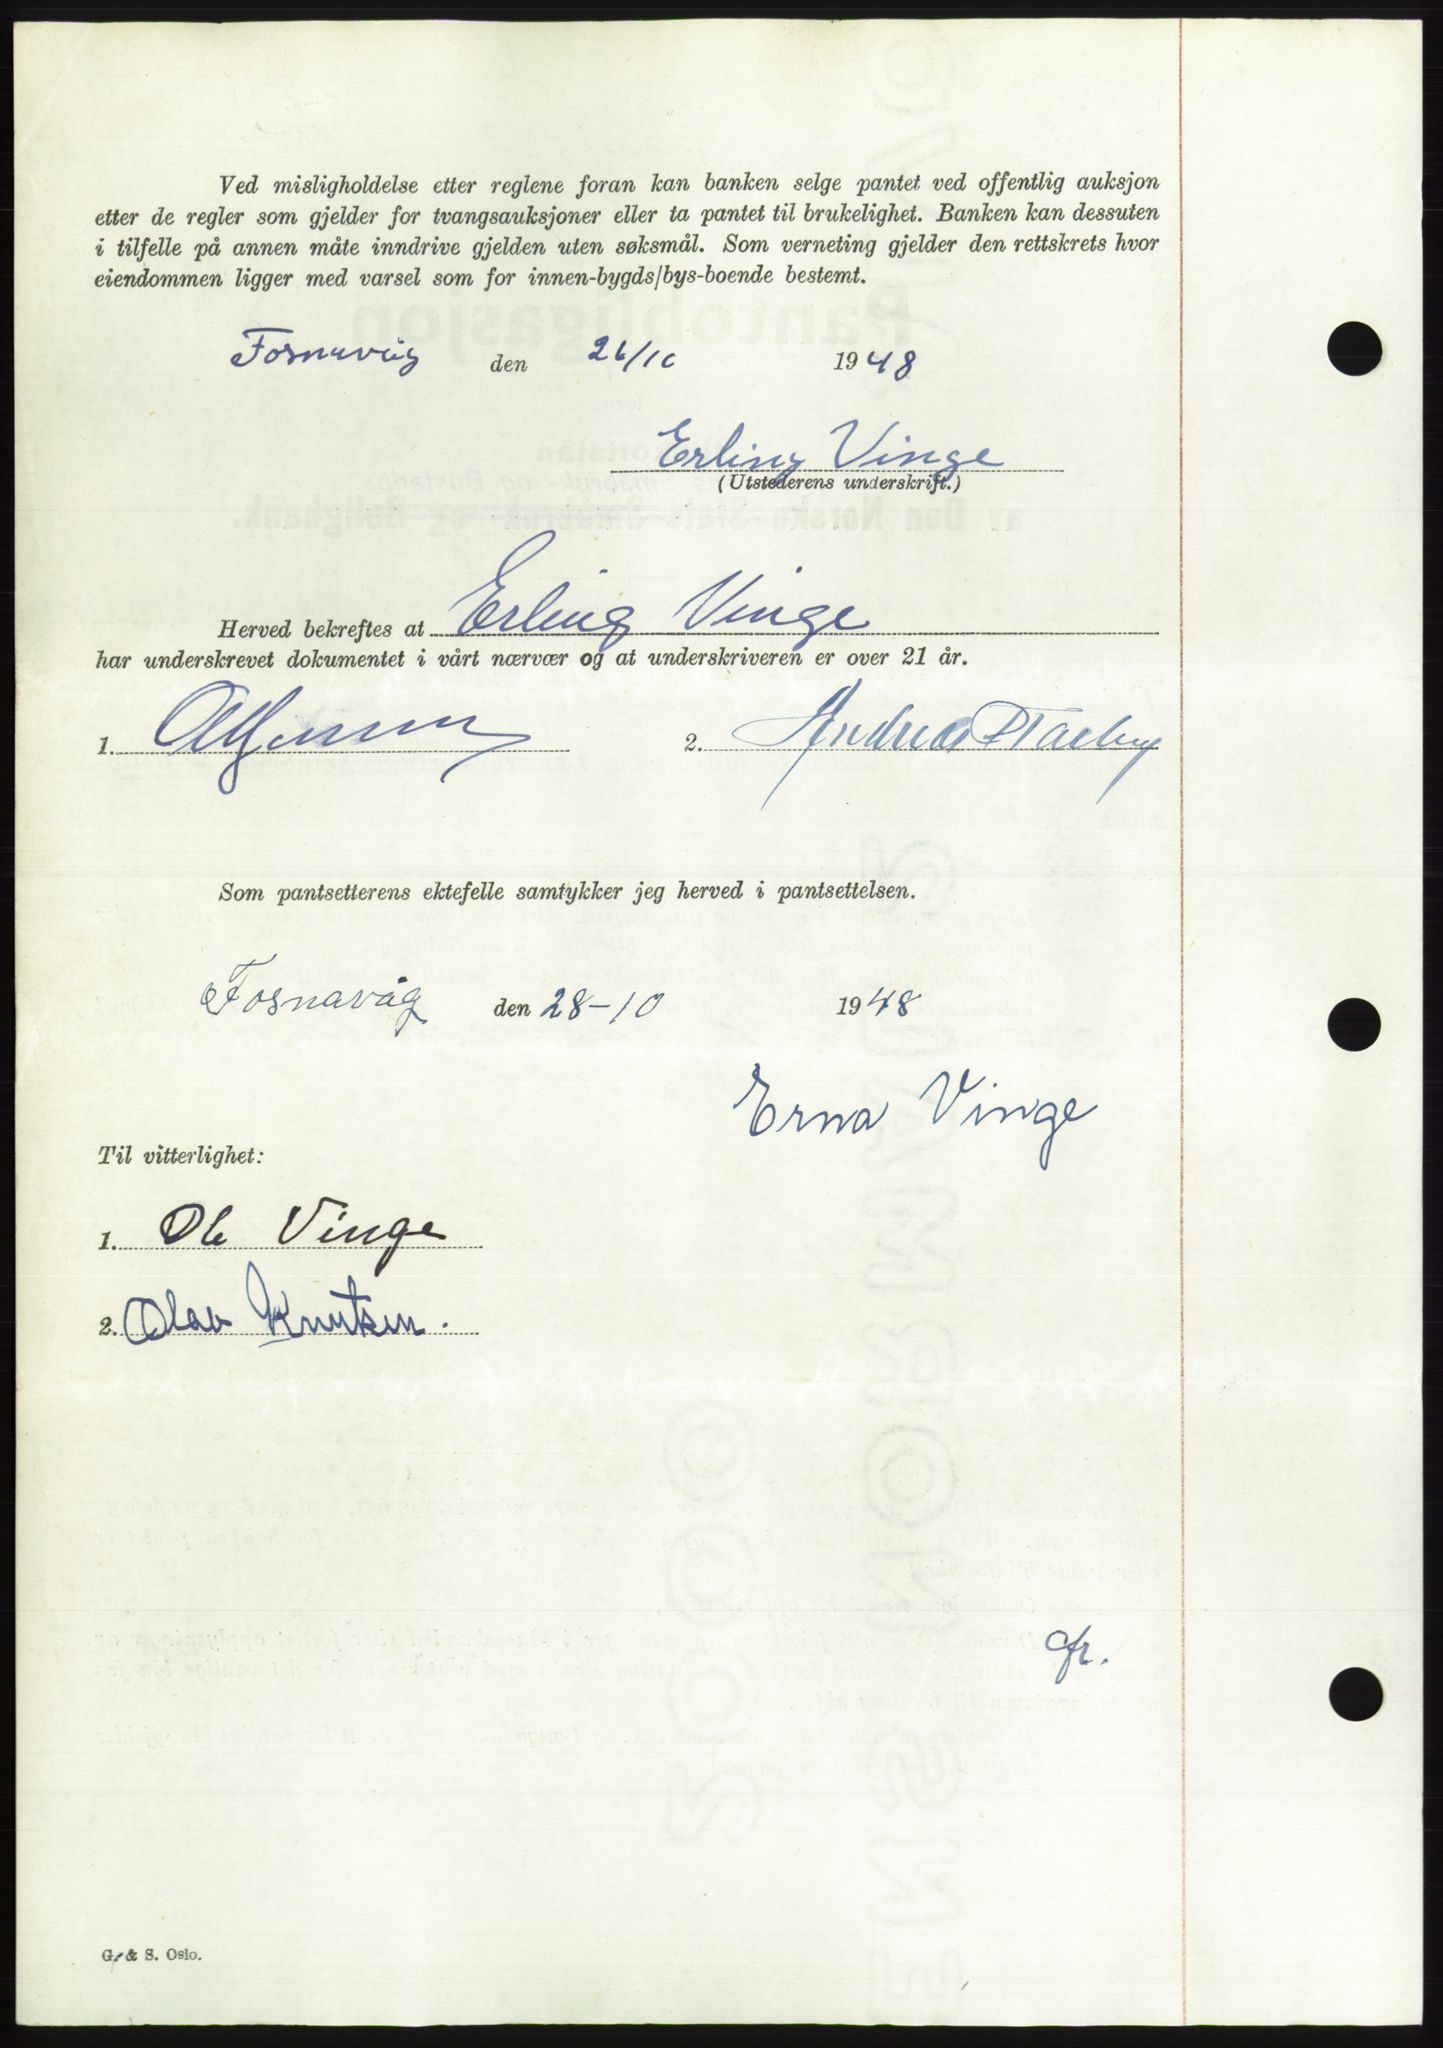 Ved misligholdelse etter reglene foran kan banken selge pantet ved offentlig auksjon
etter de regler som gjelder for tvangsauksjoner eller ta pantet til brukelighet. Banken kan dessuten
i tilfelle på annen måte inndrive gjelden uten søksmål. Som verneting gjelder den rettskrets hvor
eiendommen ligger med varsel som for innen-bygds/bys-boende bestemt.
Fosnavåg den 26/10 1948
Erling Vinge
(Utstederens underskrift.)
Herved bekreftes at Erling Vinge
har underskrevet dokumentet i vårt nærvær og at underskriveren er over 21 år.
1. 2. Andreas
Som pantsetterens ektefelle samtykker jeg herved i pantsettelsen.
Fosnavåg den 28-10 1948
Erna Vinge
Til vitterlighet:
1. Ole Vinge
2. Olav Knutsen.
G. & S. Oslo.